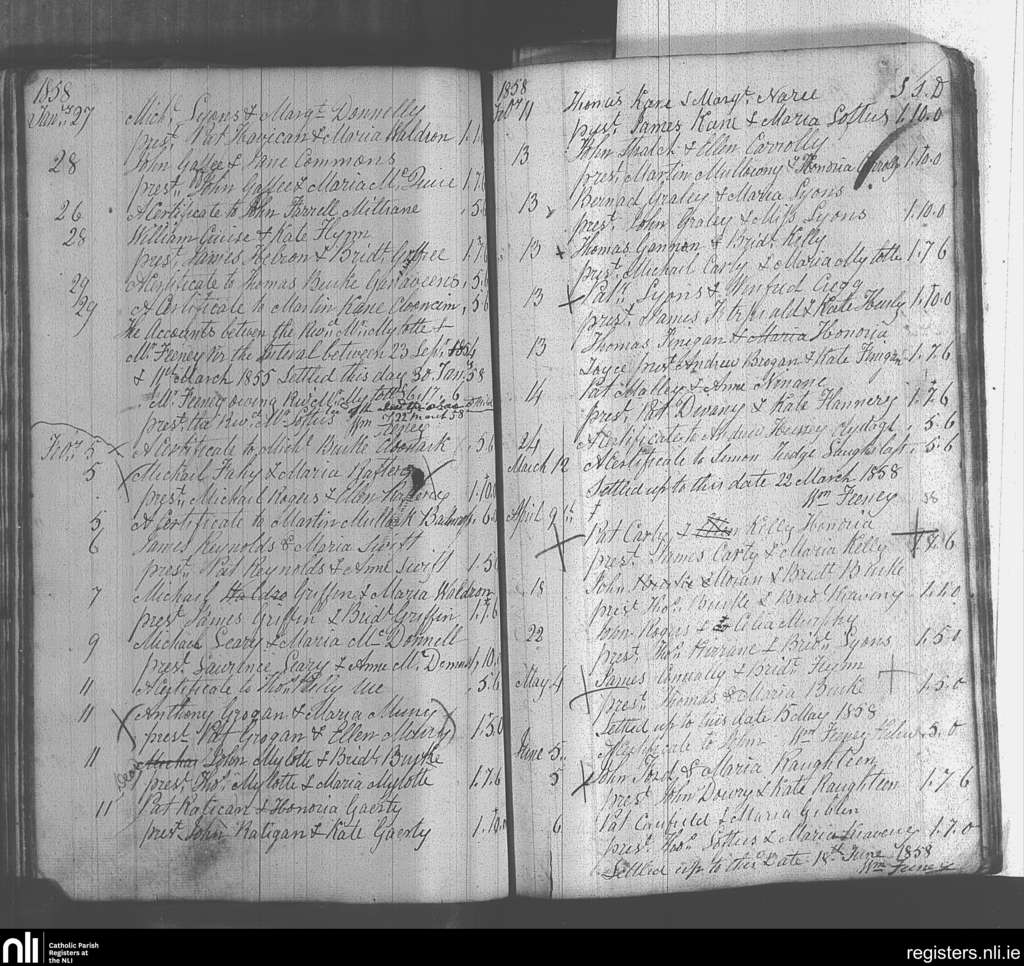 1858
Jany. 27 Michl. Lyons & Margt. Donnelly
prest. Pat Havican & Maria Waldron
28 John Gaffee & Jane Commons
prest. John Gaffee & Maria Mc 1.7.6
26 A Certificate to John Farrell Milltrane , 5.6
28 William Cuise & Kate Flynn
prest. James & Bridt. Gaffee 1.7.6
29 A Certificate to Thomas Burke , 5.6
29 A Certificate to Martin Kane Clooncim , 5.6
The Accounts between the Revd. Mr. Mylotte &
Mr. Feeney for the interval between 23 Sept. 1854
& 11th March 1855 Settled this day 30 Jany. 58
Mr. Feeney owing Revd. Mr. Mylotte £6.17.6
prest. the Revd. Mr. Loftus
22 March 58
Wm Feeney
Feby. 5 A Certificate to Michl. Burke , 5.6
5 Michael Fahy & Maria Rafferty
prest. Michael Rogers & Ellen Rafferty 1.10.0
5 A Certificate to Martin
6 James Reynolds & Maria Swift
prest. Pat Reynolds & Anne Swift 1.5.0
7 Michael Griffin & Maria Waldron
prest. James Griffin & Bridt. Griffin 1.7.6
9 Michael Leary & Maria Mc Donnell
prest. Lawrence Leary & Anne Mc Donnell 1.10.
11 A Certificate to Thos. , 5.6
11 Anthony Grogan & Maria
prest. Pat Grogan & Ellen 1.5.0
11 John Mylotte & Bridt. Burke
prest. Thos. Mylotte & Maria Mylotte 1.7.6
11 Pat Ratican & Honoria Gaerty
prest. John Ratigan & Kate Gaerty 1.10.0
1858 £ S D
Feby. 11 Thomas Kane & Margt. Naree
prest. James Kane & Maria Loftus 1.10.0
13 John & Ellen Carrolly
prest. Martin Mullowny & Honoria 1.10.0
13 Bernad Graley & Maria Lyons
prest. John Graley & Miss Lyons 1.10.0
13 Thomas Gannon & Bridt. Kelly
prest. Michael Carly & Maria Mylotte 1.7.6
13 Patk. Lyons & Winfred
prest. James Fitzpiald & Kate 1.10.0
13 Thomas Finigan & Maria Honoria
Joyce prest. Andrew Brogan & Kate Finigan 1.7.6
14 Pat Malley & Anne
prest. Pat Divany & Kate Flannery 1.7.6
24 A Certificate to Andrew , 5.6
March 12 A Certificate to Simon , 5.6
Settled up to this date 22 March 1858
Wm Feeney
April 9th Pat Carly & Kelly Honoria
prest. James Carly & Maria Kelly 1.7.6
18 John & Bridt Burke
prest. Thos. Burke & Brid. Keaveny 1.1.0
22 Rogers & Celia Murphy
prest. Thos. & Bridt. Lyons 1.5.0
May 4 James Connally & Bridt. Flynn
prest. Thomas & Maria Burke 1.5.0
Settled up to this date 15 May 1858
Wm Feeney
June 5. A Certificate to John , 5.0
5 John Ford & Maria Haughteen
prest. John Dowry & Kate Haughteen 1.7.6
6 Pat Caufield & Maria Giblin
prest. Thos. Loftus & Maria Keaveney 1.7.0
Settled up to this Date 18th June 1858
Wm Feeney
nli Catholic Parish
Registers at
the NLI
registers.nli.ie